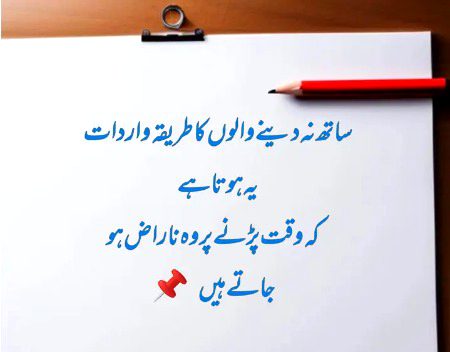 ساتھ نہ دینے والوں کا طریقۂ واردات
یہ ہوتا ہے
کہ وقت پڑنے پر وہ ناراض ہو
جاتے ہیں 📌